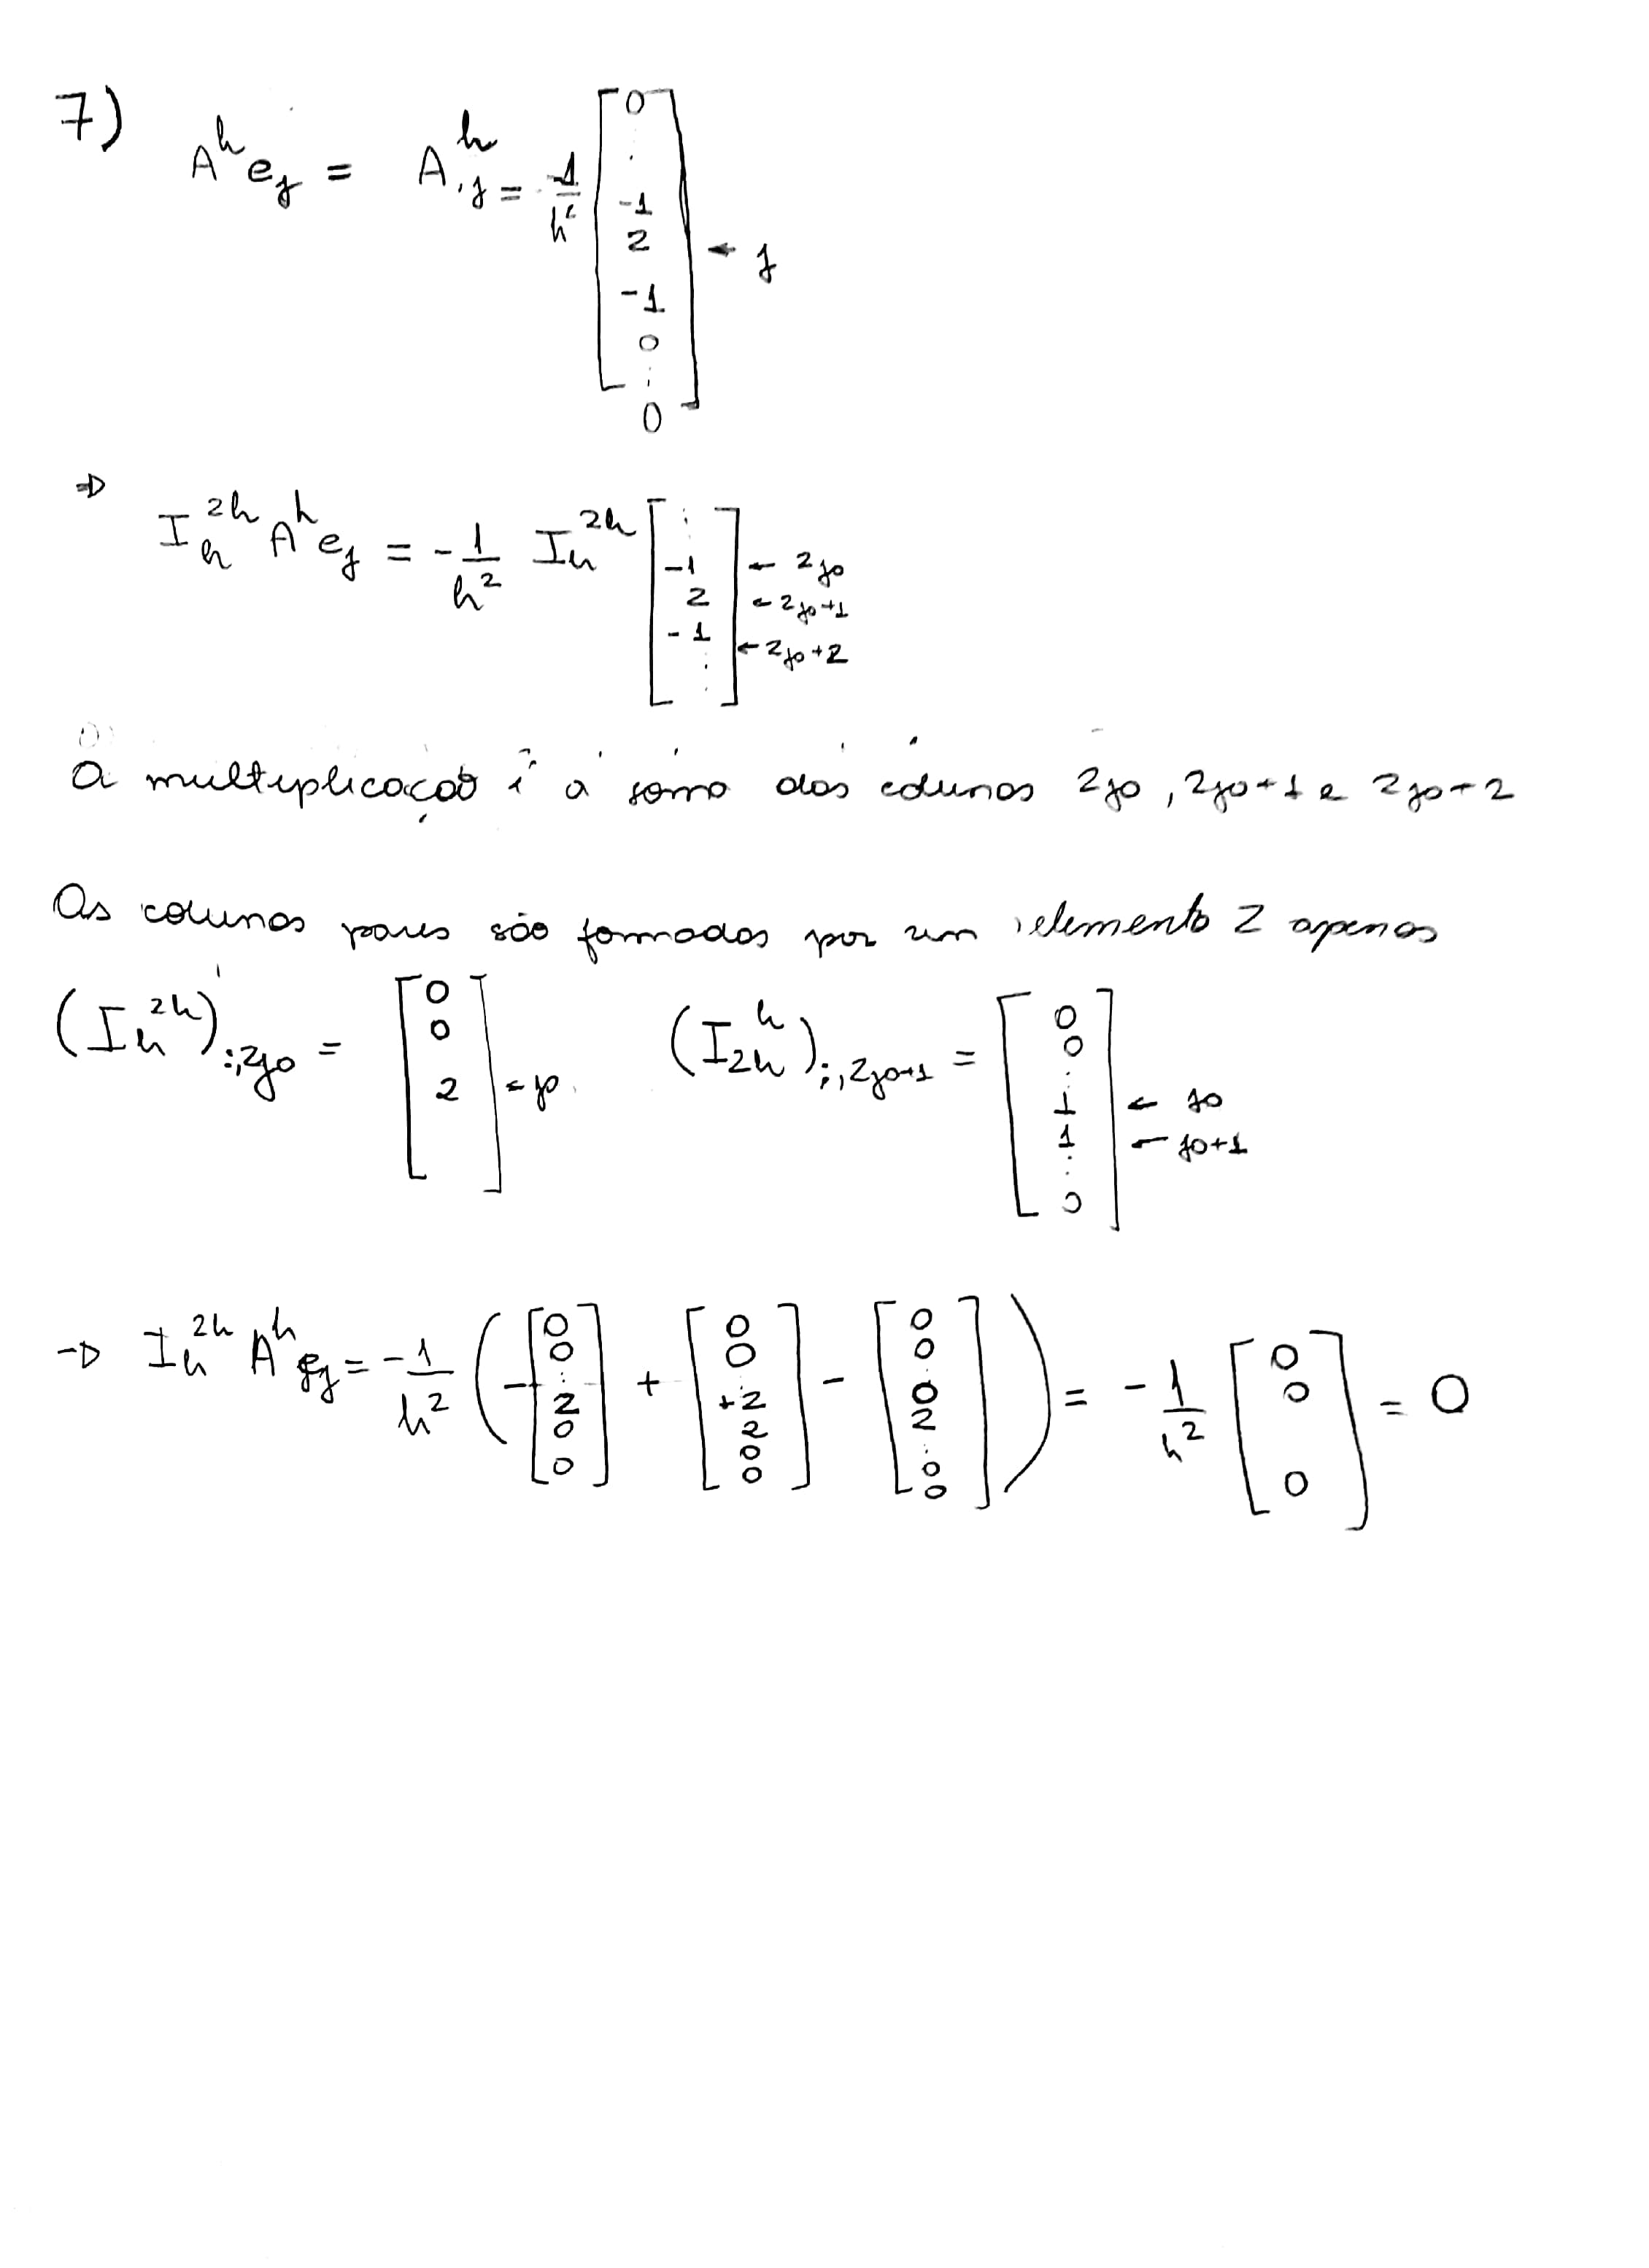 7) A^h e_j = A^h_{,j} = -1/h² [0 . -1 2 -1 0 : 0] ← j
⇒ I_h^{2h} A^h e_j = -1/h² I_h^{2h} [: -1 2 -1 : .] ← 2j0 ← 2j0+1 ← 2j0+2
A multiplicação é a soma das colunas 2j0, 2j0+1 e 2j0+2
As colunas pares são formadas por um elemento 2 apenas
(I_h^{2h})_{:,2j0} = [0 0 2] ← j0 (I_{2h}^h)_{:,2j0+1} = [0 0 : 1 1 : 0] ← j0 ← j0+1
→ I_h^{2h} A^h e_j = -1/h² (-[0 0 : 2 0 0] + [0 0 . +2 2 0 0] - [0 0 . 0 2 : 0 0]) = -1/h² [0 0 0] = 0